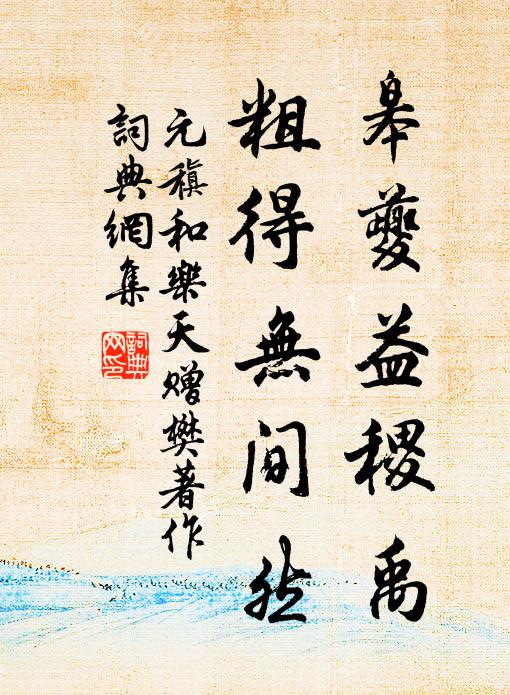 皋夔益稷禹
粗得無間然
元稹和樂天贈樊著作
詞典網集